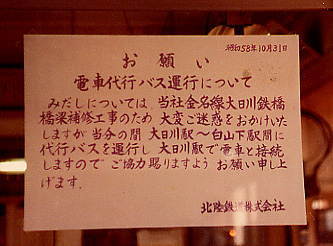 昭和58年10月31日
お願い
電車代行バス運行について
みだしについては 当社金名線大日川鉄橋
橋梁補修工事のため 大変ご迷惑をおかけいた
しますが 当分の間 大日川駅〜白山下駅間に
代行バスを運行し 大日川駅で電車と接続
しますので ご協力賜りますよう お願い申し上
げます.
北陸鉄道株式会社